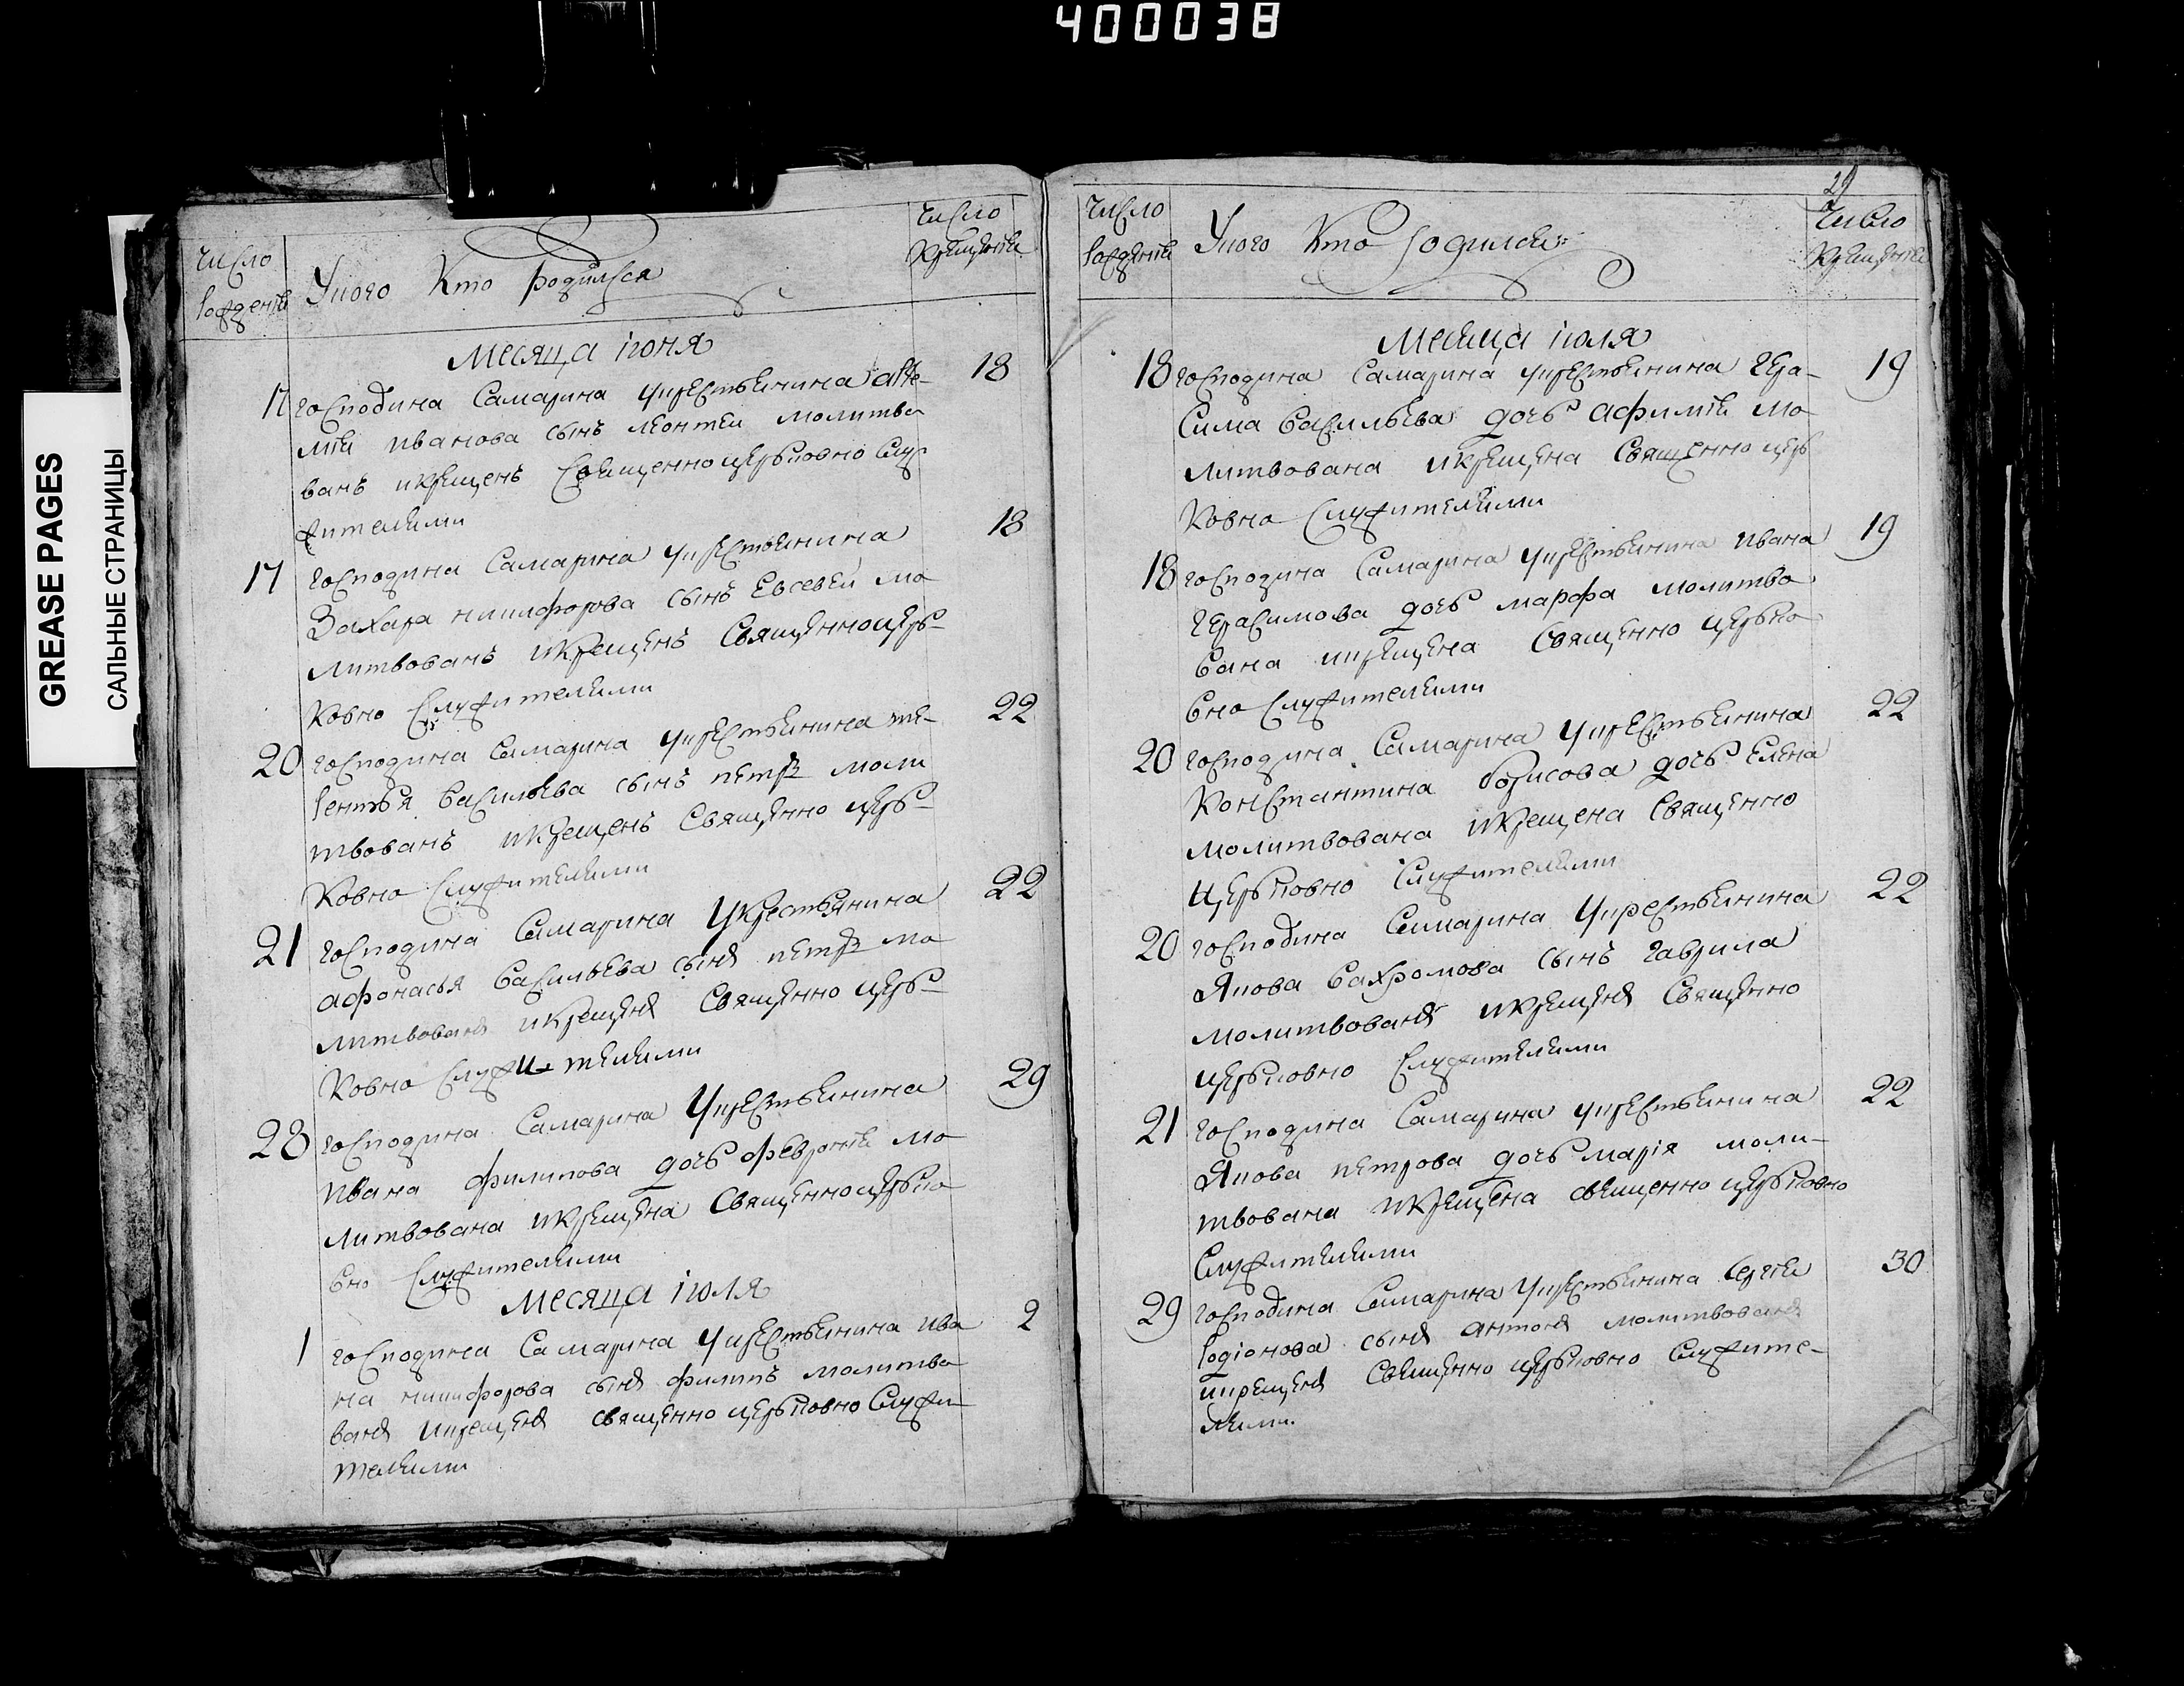 400038
GREASE PAGES
САЛЬНЫЕ СТРАНИЦЫ
число
рожденiя
Укого Кто родился
число
крещенiя
Месяца iюня
17 господина Самарина укрестьянина арте- 18
мiя иванова сынъ леонтеи молитво
ванъ икрещенъ Священноцерьковно слу
жителями
17 господина Самарина укрестьянина 18
Захара никифорова сынъ Евсевеи мо
литвованъ икрещенъ Священноцерь-
ковно Служителями
20 господина Самарина укрестьянина те- 22
рентья васильева сынъ петръ моли
твованъ икрещенъ Священно церь-
ковно Служителями
21 господина Самарина Укрестьянина 22
афонасья васильева сынъ петръ мо
литвованъ икрещенъ Священно церь-
ковно Служи- телями
28 господина Самарина Укрестьянина 29
ивана филипова дочь феврониiя мо
литвована икрещена Священноцерько
вно Служителями
Месяца iюля
1 господина Самарина укрестьянина ива 2
на никифорова сынъ филипъ молитво
ванъ икрещенъ священно церьковно Служи
телями
29
число
рожденiя
Укого Кто родился
число
крещенiя
Месяца iюля
18 господина Самарина укрестьянина гера- 19
сима васильева дочь афимiя мо
литвована икрещена Священно церь
ковно Служителями
18 господина Самарина укрестьянина ивана 19
герасимова дочь марфа молитво
вана икрещена Священно церько
вно Служителями
20 господина Самарина укрестьянина 22
Константина борисова дочь Елена
молитвована икрещена Священно
церьковно Служителями
20 господина Самарина Укрестьянина 22
Якова вахромова сынъ гаврила
молитвованъ икрещенъ Священно
церьковно Служителями
21 господина Самарина укрестьянина 22
Якова петрова дочь марiя моли-
твована икрещена священно церьковно
Служителями
29 господина Самарина Укрестьянина сергея 30
родiонова сынъ антонъ молитвованъ
икрещенъ Священно церьковно Служите-
лями